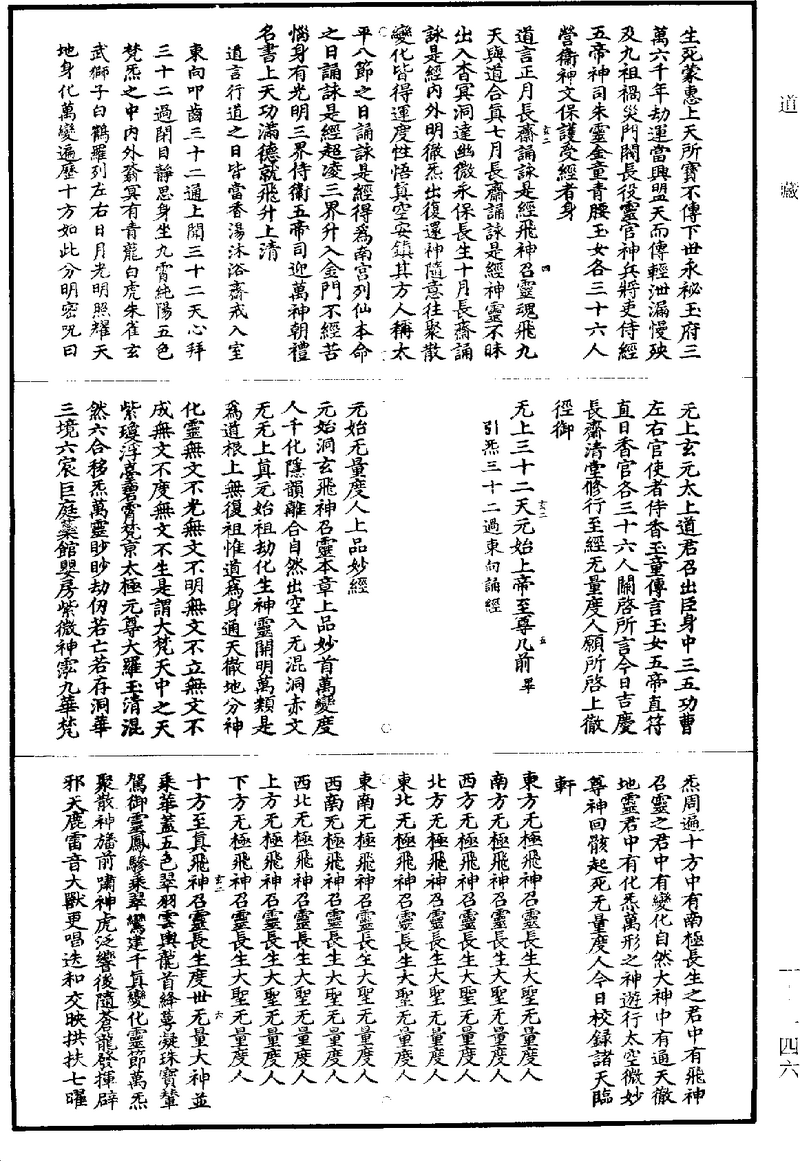 道藏
一·一四六
生死蒙惠上天所寶不傳下世永祕玉府三
萬六千年劫運當興盟天而傳輕泄漏慢殃
及九祖禍災門閤長役靈官神兵將吏侍經
五帝神司朱靈金童青腰玉女各三十六人
營衛神文保護受經者身
玄二 四
道言正月長齋誦詠是經飛神召靈魂飛九
天與道合眞七月長齋誦詠是經神靈不昧
出入杳冥洞達幽微永保長生十月長齋誦
詠是經內外明徹炁出復還神隨意往聚散
變化皆得運度性悟眞空安鎮其方人稱太
平八節之日誦詠是經得爲南宮列仙本命
之日誦詠是經超凌三界升入金門不經苦
惱身有光明三界侍衛五帝司迎萬神朝禮
名書上天功滿德就飛升上清
道言行道之日皆當香湯沐浴齋戒入室
東向叩齒三十二通上聞三十二天心拜
三十二過閉目靜思身坐九霄純陽五色
梵炁之中內外蓊冥有青龍白虎朱雀玄
武獅子白鶴羅列左右日月光明照耀天
地身化萬變遍歷十方如此分明密呪曰
无上玄元太上道君召出臣身中三五功曹
左右官使者侍香玉童傳言玉女五帝直符
直日香官各三十六人關啓所言今日吉慶
長齋清堂修行至經无量度人願所啓上徹
徑御
玄二 五
无上三十二天元始上帝至尊几前畢
引炁三十二過東向誦經
元始无量度人上品妙經
元始洞玄飛神召靈本章上品妙首萬變度
人千化隱韻離合自然出空入无混洞赤文
无无上眞元始祖劫化生神靈開明萬類是
爲道根上無復祖惟道爲身通天徹地分神
化靈無文不光無文不明無文不立無文不
成無文不度無文不生是謂大梵天中之天
紫瓊浮臺碧霄梵京太極元尊大羅玉清混
然六合移炁萬靈眇眇劫仞若亡若存洞華
三境六宸巨庭蘂館嬰房紫微神霐九華梵
炁周遍十方中有南極長生之君中有飛神
召靈之君中有變化自然大神中有通天徹
地靈君中有化炁萬形之神遊行太空微妙
尊神回骸起死无量度人今日校錄諸天臨
軒
東方无極飛神召靈長生大聖无量度人
南方无極飛神召靈長生大聖无量度人
西方无極飛神召靈長生大聖无量度人
北方无極飛神召靈長生大聖无量度人
東北无極飛神召靈長生大聖无量度人
東南无極飛神召靈長生大聖无量度人
西南无極飛神召靈長生大聖无量度人
西北无極飛神召靈長生大聖无量度人
上方无極飛神召靈長生大聖无量度人
下方无極飛神召靈長生大聖无量度人
玄二 六
十方至眞飛神召靈長生度世无量大神並
乘華蓋五色翠羽雲輿龍首絳萼凝珠寶輦
駕御靈鳳驂乘翠鸞建千眞變化靈節萬炁
聚散神旛前嘯神虎泛響後隨蒼龍發揮辟
邪天鹿雷音大獸更唱迭和交映拱扶七曜